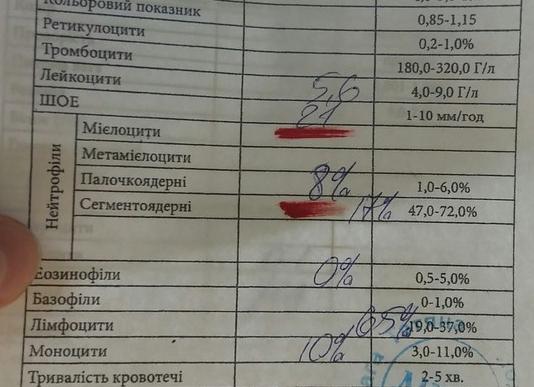 Кольоровий показник
Ретикулоцити 0,85-1,15
Тромбоцити 0,2-1,0%
Лейкоцити 180,0-320,0 Г/л
ШОЕ 5,6 4,0-9,0 Г/л
Мієлоцити 21 1-10 мм/год
Нейтрофіли
Метамієлоцити
Палочкоядерні 8% 1,0-6,0%
Сегментоядерні 17% 47,0-72,0%
Еозинофіли 0% 0,5-5,0%
Базофіли 0-1,0%
Лімфоцити 65% 19,0-37,0%
Моноцити 10% 3,0-11,0%
Тривалість кровотечі 2-5 хв.